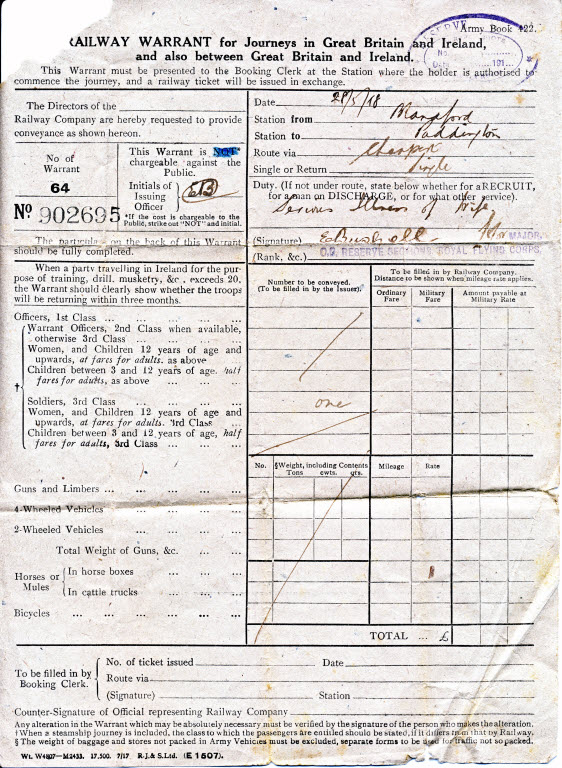 Army Book 422.
RAILWAY WARRANT for Journeys in Great Britain and Ireland,
and also between Great Britain and Ireland.
RESERVE
No.
Date 191
This Warrant must be presented to the Booking Clerk at the Station where the holder is authorised to
commence the journey, and a railway ticket will be issued in exchange.
The Directors of the
Railway Company are hereby requested to provide
conveyance as shown hereon.
No of
Warrant
64
No 902695
This Warrant is NOT
chargeable against the
Public.
Initials of
Issuing
Officer
EB
*If the cost is chargeable to the
Public, strike out "NOT" and initial.
The particulars on the back of this Warrant
should be fully completed.
When a party travelling in Ireland for the pur-
pose of training, drill, musketry, &c., exceeds 20,
the Warrant should clearly show whether the troops
will be returning within three months.
Date 28/5/18
Station from
Station to Paddington
Route via Cheapest
Single or Return Single
Duty. (If not under route, state below whether for a RECRUIT,
for a man on DISCHARGE, or for what other service).
Serious Illness of Wife
(Signature) MAJOR,
(Rank, &c.) ROYAL FLYING CORPS,
Number to be conveyed.
(To be filled in by the Issuer).
To be filled in by Railway Company.
Distance to be shown when mileage rate applies.
Ordinary
Fare
Military
Fare
Amount payable at
Military Rate
Officers, 1st Class
Warrant Officers, 2nd Class when available,
otherwise 3rd Class
Women, and Children 12 years of age and
upwards, at fares for adults, as above
Children between 3 and 12 years of age, half
fares for adults, as above
†
Soldiers, 3rd Class one
Women, and Children 12 years of age and
upwards, at fares for adults, 3rd Class
Children between 3 and 12 years of age, half
fares for adults, 3rd Class
No. §Weight, including Contents Mileage Rate
Tons cwts. qrs.
Guns and Limbers
4-Wheeled Vehicles
2-Wheeled Vehicles
Total Weight of Guns, &c.
Horses or
Mules
In horse boxes
In cattle trucks
Bicycles
TOTAL ... £
To be filled in by
Booking Clerk.
No. of ticket issued Date
Route via
(Signature) Station
Counter-Signature of Official representing Railway Company
Any alteration in the Warrant which may be absolutely necessary must be verified by the signature of the person who makes the alteration.
†When a steamship journey is included, the class to which the passengers are entitled should be stated, if it differs from that by Railway.
§ The weight of baggage and stores not packed in Army Vehicles must be excluded, separate forms to be used for traffic not so packed.
Wt. W4807—M2433. 17,500. 7/17 R.J.& S.Ltd. (E 1507).